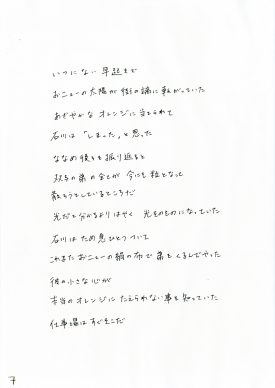 いつにない早起きで
おニューの太陽が街の端に転がっていた
あざやかなオレンジに当てられて
石川は「しまった」と思った
ななめ後ろを振り返ると
双子の弟の全てが今にも粒となって
散ろうとしているところだ
光だと分かるよりはやく 光そのものになっていた
石川はため息ひとつついて
これまたおニューの綿の布で弟をくるんでやった
彼の小さな心が
本当のオレンジにたえられない事を知っていた
仕事場はすぐそこだ
7